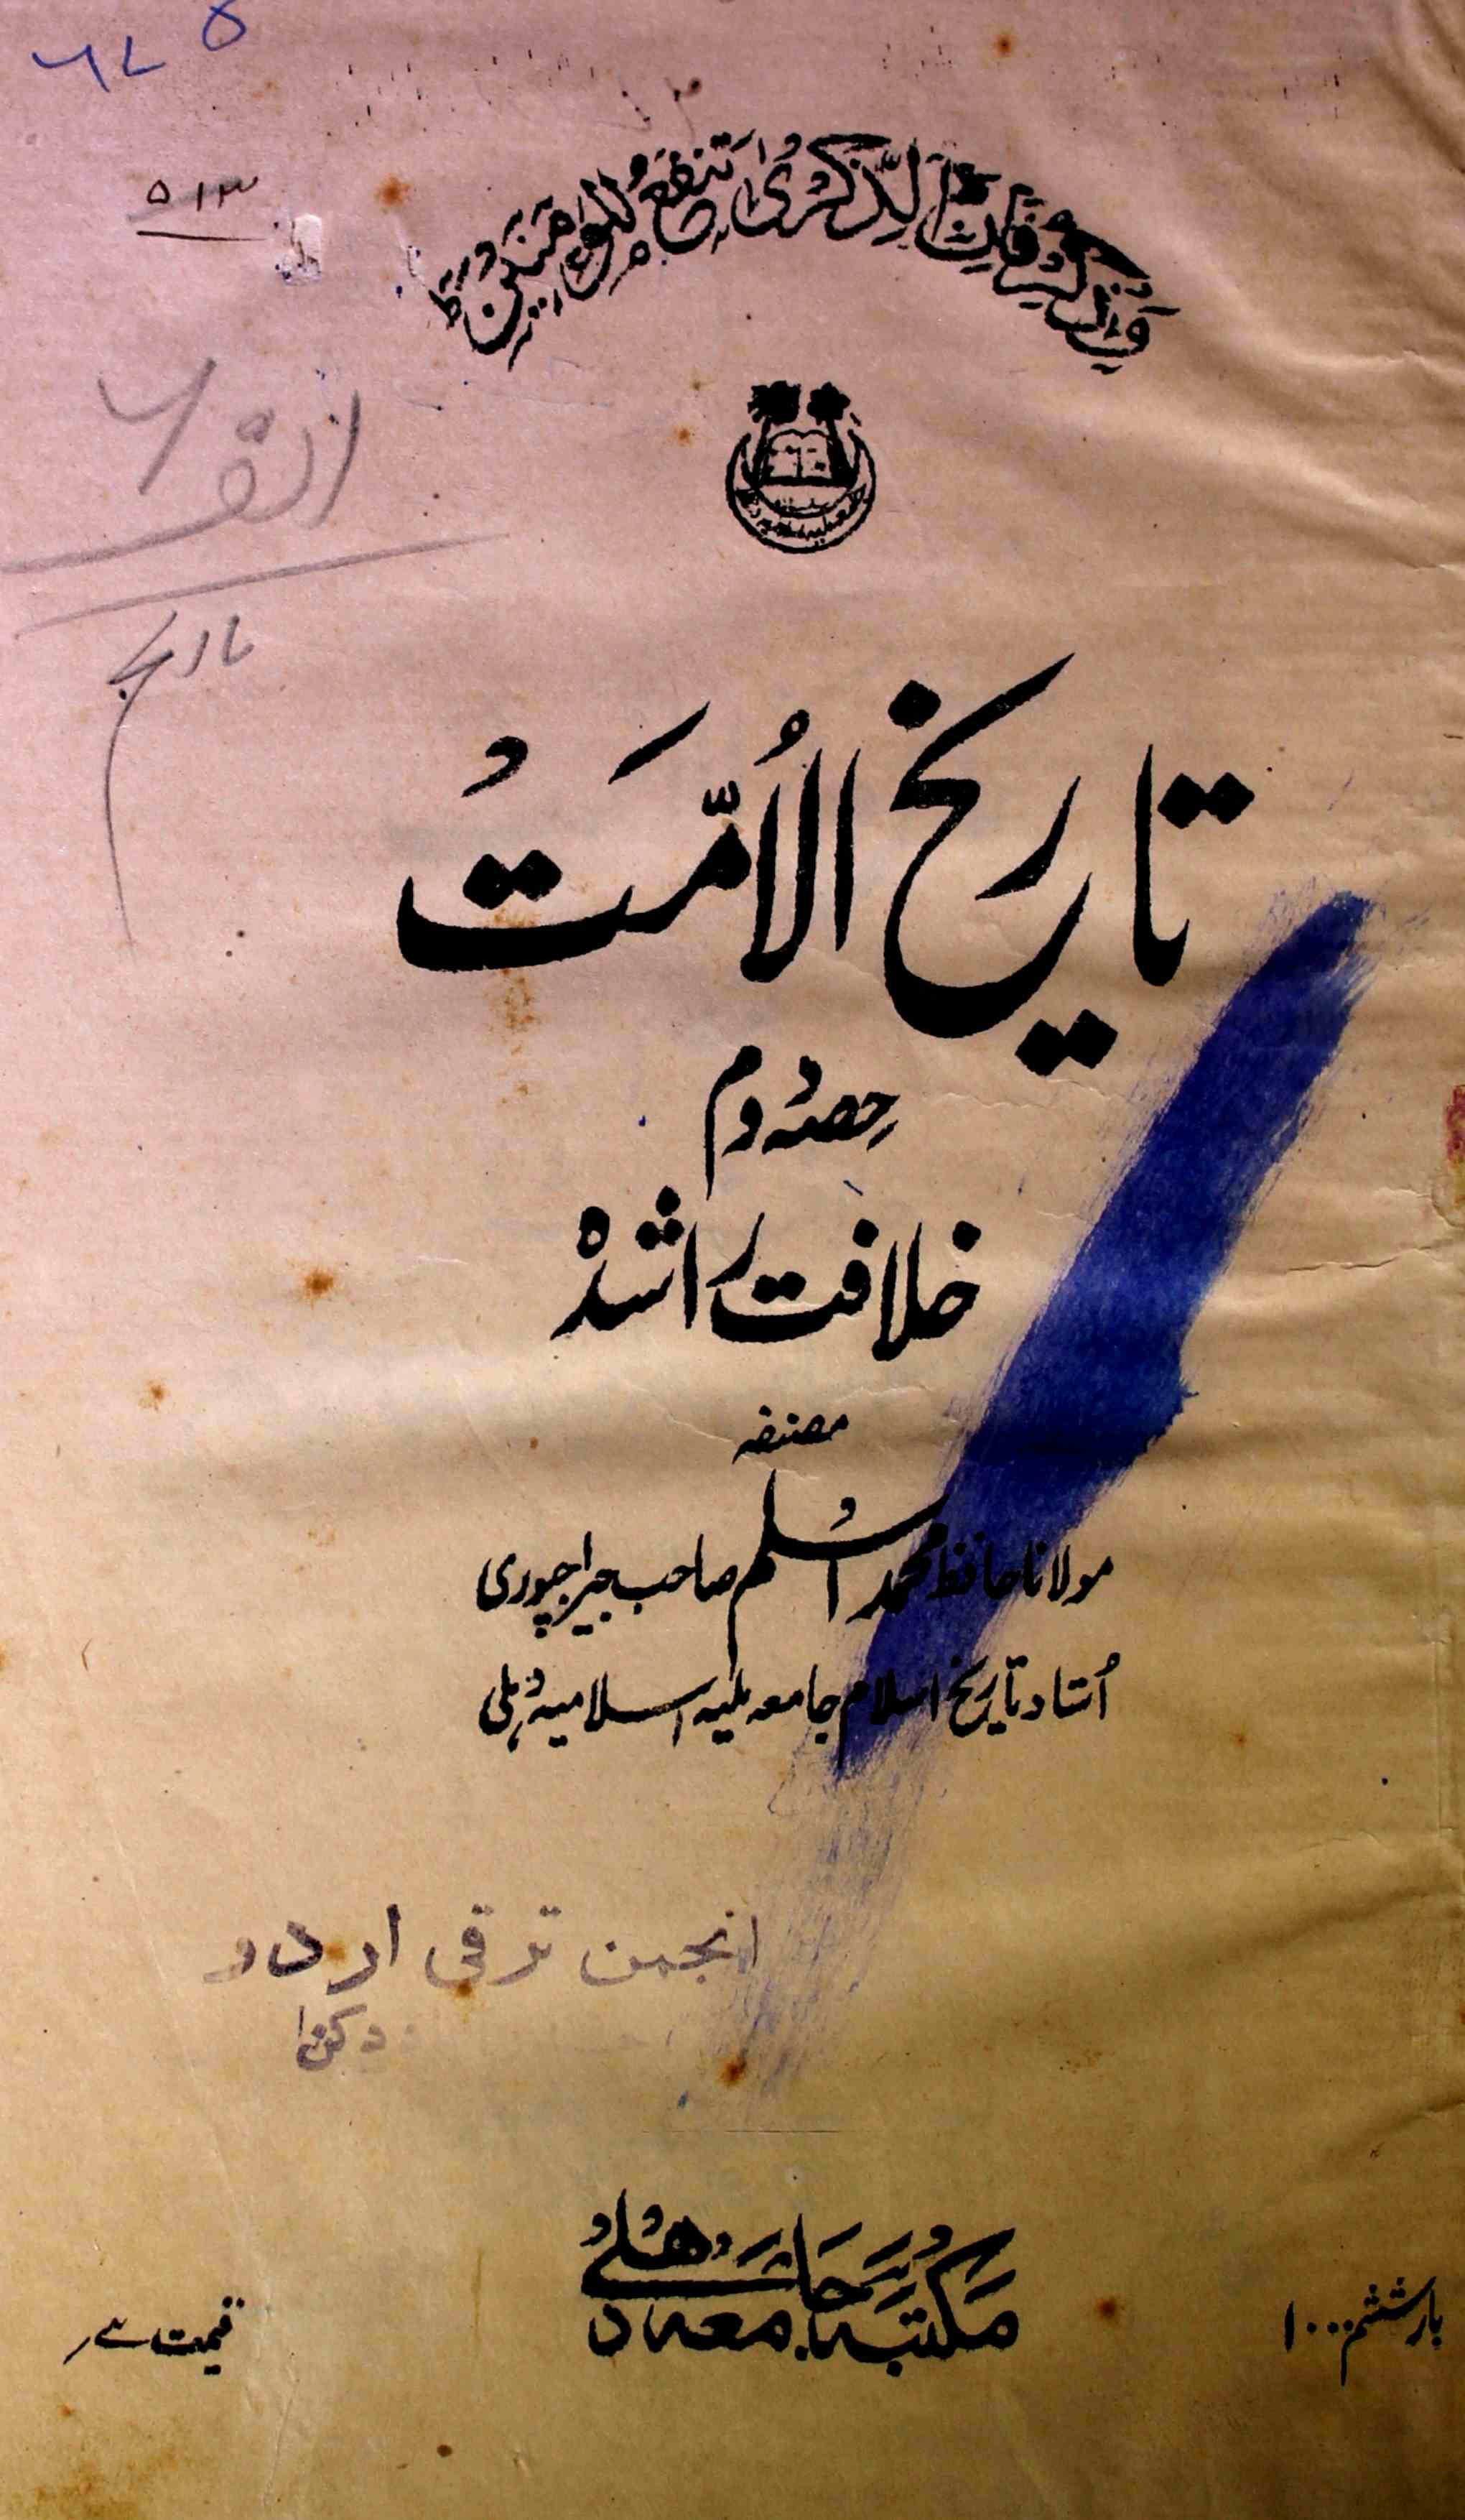 ۵۱۳
وَذَكِّرْ فَاِنَّ الذِّكْرٰى تَنْفَعُ الْمُؤْمِنِيْنَ ط
تاریخ
تاریخ الاُمّت
حصہ دوم
خلافت راشدہ
مصنفہ
مولانا حافظ محمد اسلم صاحب جیراجپوری
اُستاد تاریخ اسلام جامعہ ملیہ اسلامیہ دہلی
انجمن ترقی اردو
دکن
مکتبہ جامعہ دہلی
بار ششم ۱۰۰۰
قیمت